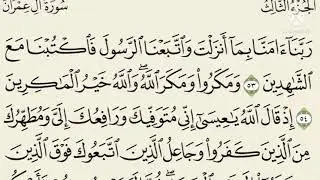 الجزء الثالث سورة آل عمران
رَبَّنَآ ءَامَنَّا بِمَآ أَنزَلْتَ وَٱتَّبَعْنَا ٱلرَّسُولَ فَٱكْتُبْنَا مَعَ
ٱلشَّٰهِدِينَ ٥٣ وَمَكَرُوا۟ وَمَكَرَ ٱللَّهُ ۖ وَٱللَّهُ خَيْرُ ٱلْمَٰكِرِينَ
٥٤ إِذْ قَالَ ٱللَّهُ يَٰعِيسَىٰٓ إِنِّى مُتَوَفِّيكَ وَرَافِعُكَ إِلَىَّ وَمُطَهِّرُكَ
مِنَ ٱلَّذِينَ كَفَرُوا۟ وَجَاعِلُ ٱلَّذِينَ ٱتَّبَعُوكَ فَوْقَ ٱلَّذِينَ